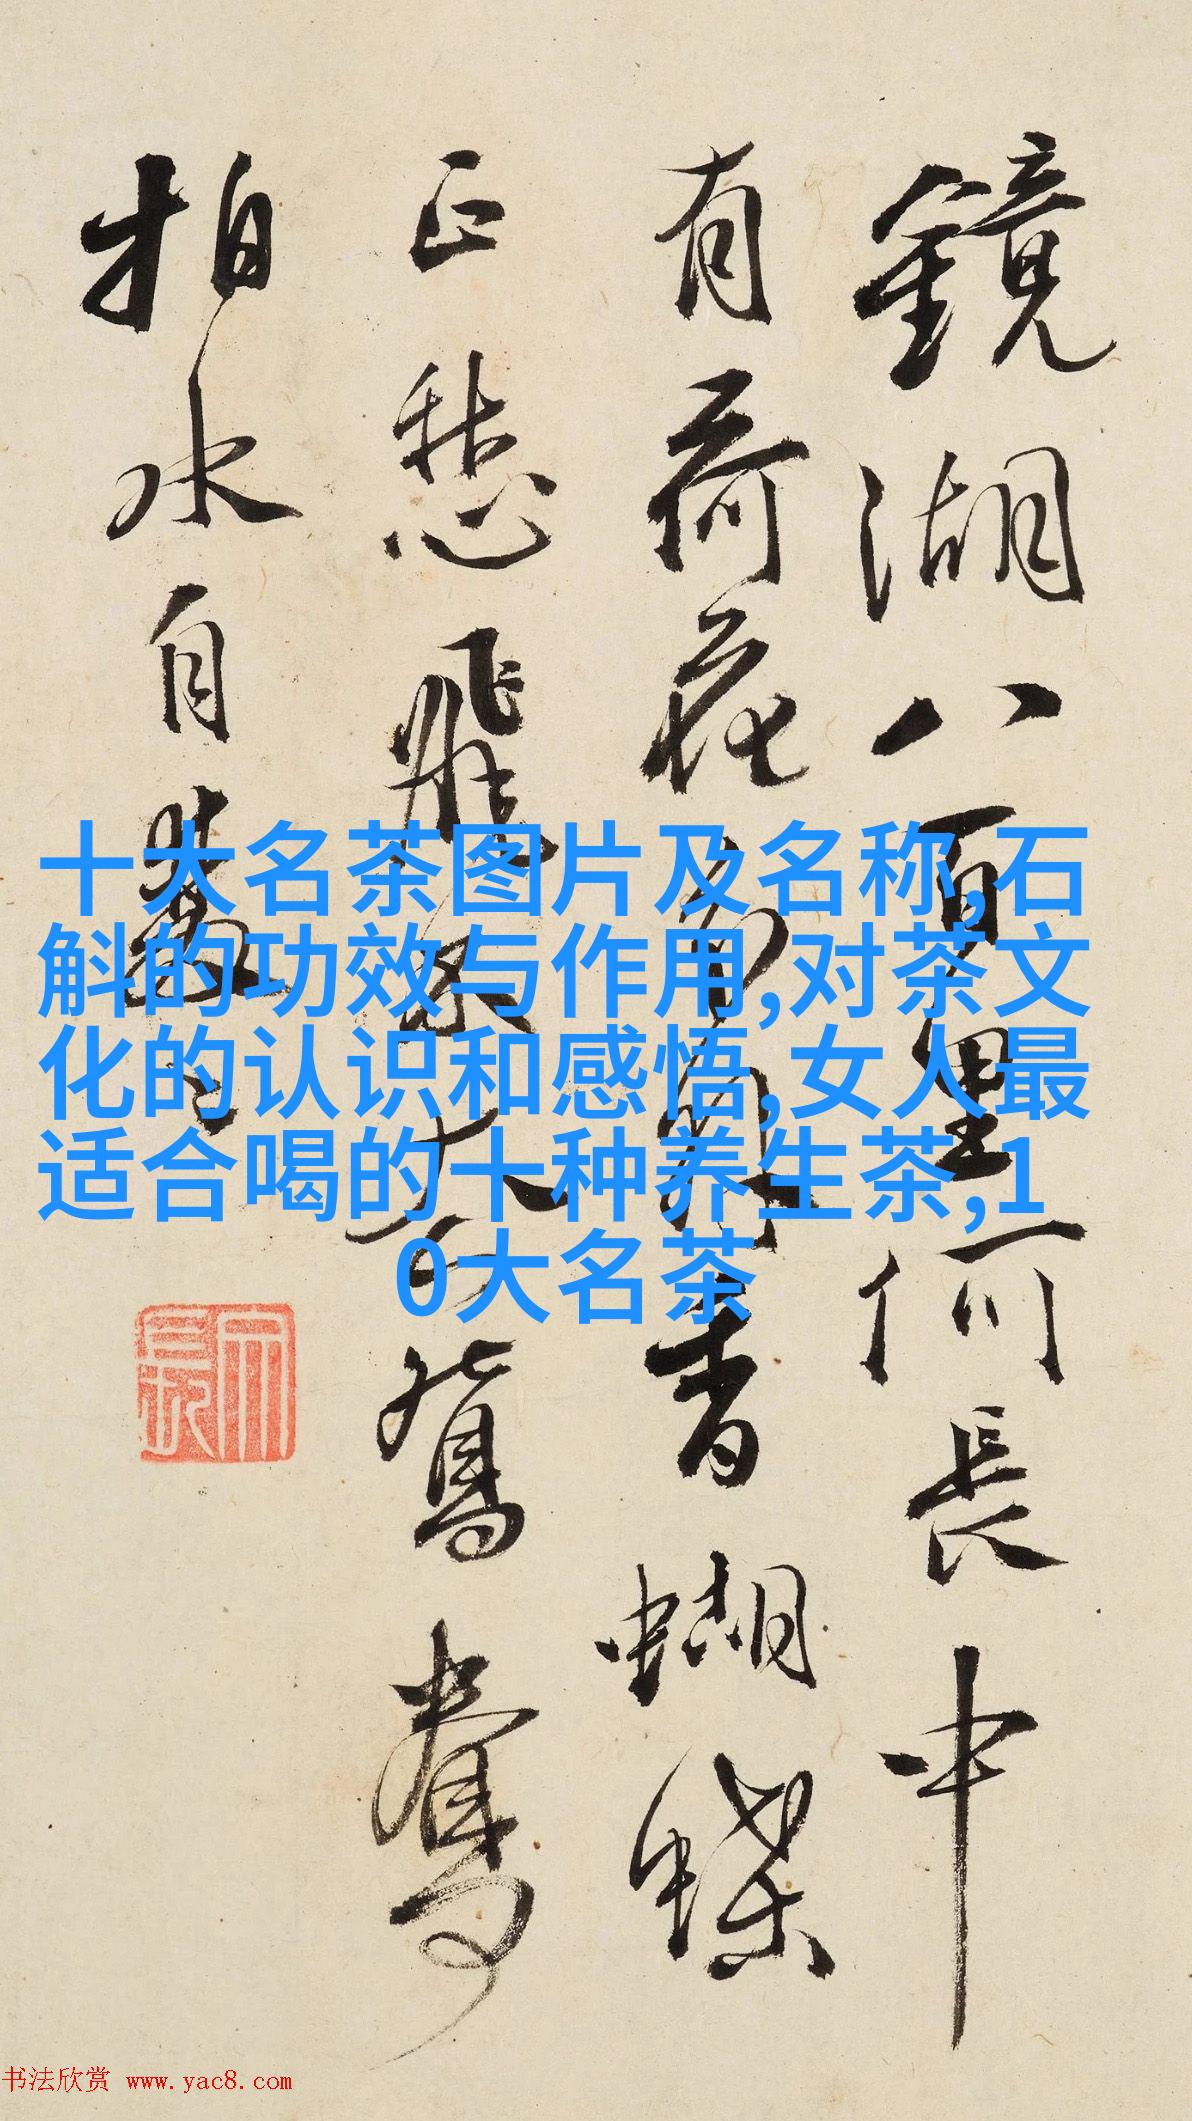 鏡湖八百里何長中
有荷花香蝴蝶
正愁飛鴛鴦
拍水自
十大名茶图片及名称,石
斛的功效与作用,对茶文
化的认识和感悟,女人最
适合喝的十种养生茶,1
0大名茶
书法欣赏 www.yac8.com